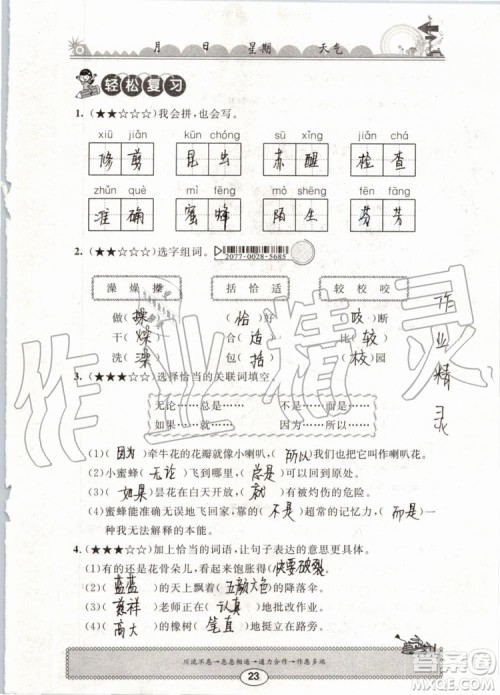 月 日 星期 天气
轻松复习
1. (★★☆☆☆)我会拼,也会写。
xiū jiǎn kūn chóng sū xǐng jiǎn chá
修剪 昆虫 苏醒 检查
zhǔn què mì fēng mò shēng fēn fāng
准确 蜜蜂 陌生 芬芳
2. (★★☆☆☆)选字组词。
2077-0028-5685
澡 燥 操 括 恰 适 较 校 咬
做(操) (恰)好 (咬)断
干(燥) 合(适) 比(较)
洗(澡) 包(括) (校)园
3. (★★★☆☆)选择恰当的关联词填空。
无论……总是…… 不是……而是……
如果……就…… 因为……所以……
(1)(因为)牵牛花的花瓣就像小喇叭,(所以)我们也把它叫作喇叭花。
(2)小蜜蜂(无论)飞到哪里,(总是)可以回到原处。
(3)(如果)昙花在白天开放,(就)有被灼伤的危险。
(4)蜜蜂能准确无误地飞回家,靠的(不是)超常的记忆力,(而是)一
种我无法解释的本能。
4. (★★★☆☆)加上恰当的词语,让句子表达的意思更具体。
(1)有的还是花骨朵儿,看起来饱胀得(快要破裂)似的。
(2)(蓝蓝)的天上飘着(五颜六色)的降落伞。
(3)(慈祥)老师正在(认真)地批改作业。
(4)(高大)的橡树(笔直)地挺立在路旁。
川流不息→息息相通→通力合作→作恶多端
23
作业精灵